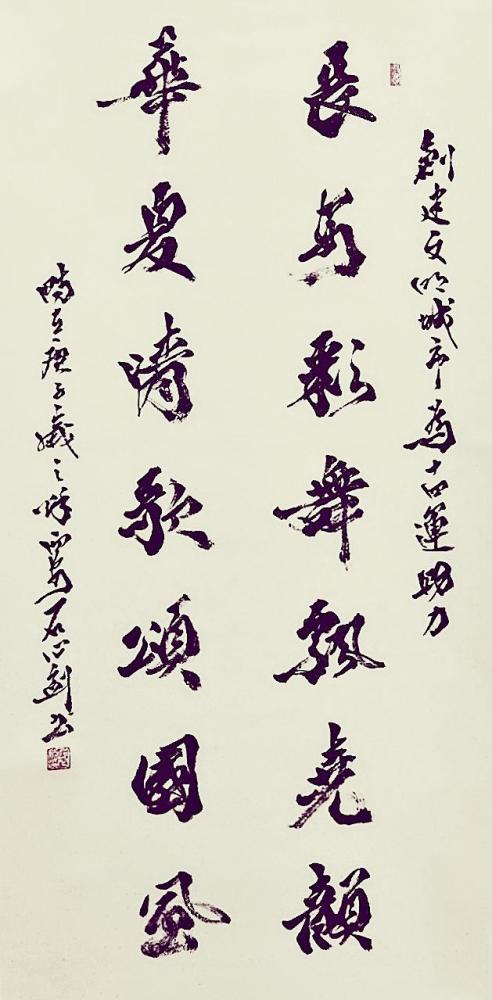 創建文明城市為十四運助力
長安彩舞飄堯顏
華夏情歌頌國風
時在庚子歲之西安石心劍書